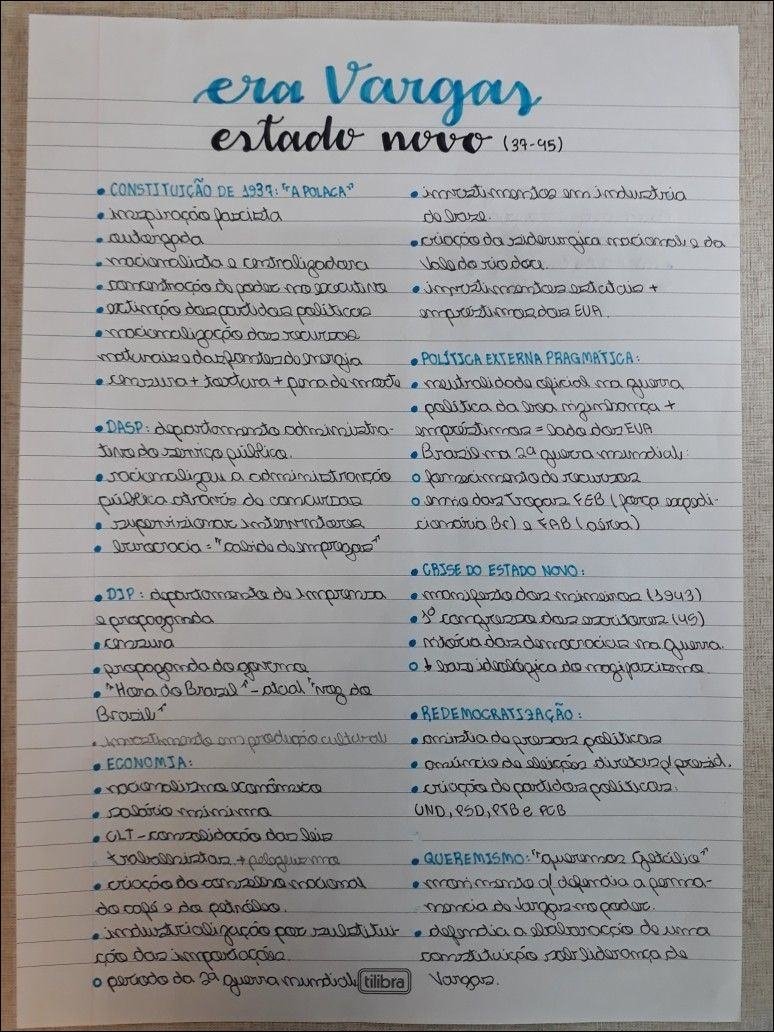 era Vargas
estado novo (37-45)
• CONSTITUIÇÃO DE 1937: "A POLACA"
• inspiração fascista
• outorgada
• nacionalista e centralizadora
• concentração do poder no executivo
• extinção dos partidos políticos
• nacionalização dos recursos
naturais e das fontes de energia
• censura + tortura + pena de morte
• DASP: departamento administra-
tivo do serviço público.
• racionalizou a administração
pública através de concursos
• supervisionar interventores
• burocracia = "cabide de empregos"
• DIP: departamento de imprensa
e propaganda
• censura
• propaganda do governo
• "Hora do Brasil" - atual "voz do
Brasil"
• investimento em produção cultural
• ECONOMIA:
• nacionalismo econômico
• salário mínimo
• CLT - consolidação das leis
trabalhistas + peleguismo
• criação do conselho nacional
do café e do petróleo.
• industrialização por substitui-
ção das importações.
○ período da 2ª guerra mundial
tilibra
• investimentos em indústria
de base.
• criação da siderurgica nacional e da
Vale do rio doce.
• investimentos estatais +
empréstimos dos EUA.
• POLÍTICA EXTERNA PRAGMÁTICA:
• neutralidade oficial na guerra
• política da boa vizinhança +
empréstimos = lado dos EUA
• Brasil na 2ª guerra mundial:
○ fornecimento de recursos
○ envio das tropas FEB (força expedi-
cionária Br) e FAB (aérea)
• CRISE DO ESTADO NOVO:
• manifesto dos mineiros (1943)
• 1º congresso dos escritores (45)
• vitória das democracias na guerra.
○ ↓ base ideológica do nazifascismo.
• REDEMOCRATIZAÇÃO:
• anistia de presos políticos
• anúncio de eleições diretas p/ presid.
• criação de partidos políticos:
UND, PSD, PTB e PCB
• QUEREMISMO: "queremos Getúlio"
• movimento q/ defendia a perma-
nencia de Vargas no poder.
• defendia a elaboração de uma
constituição sob liderança de
Vargas.